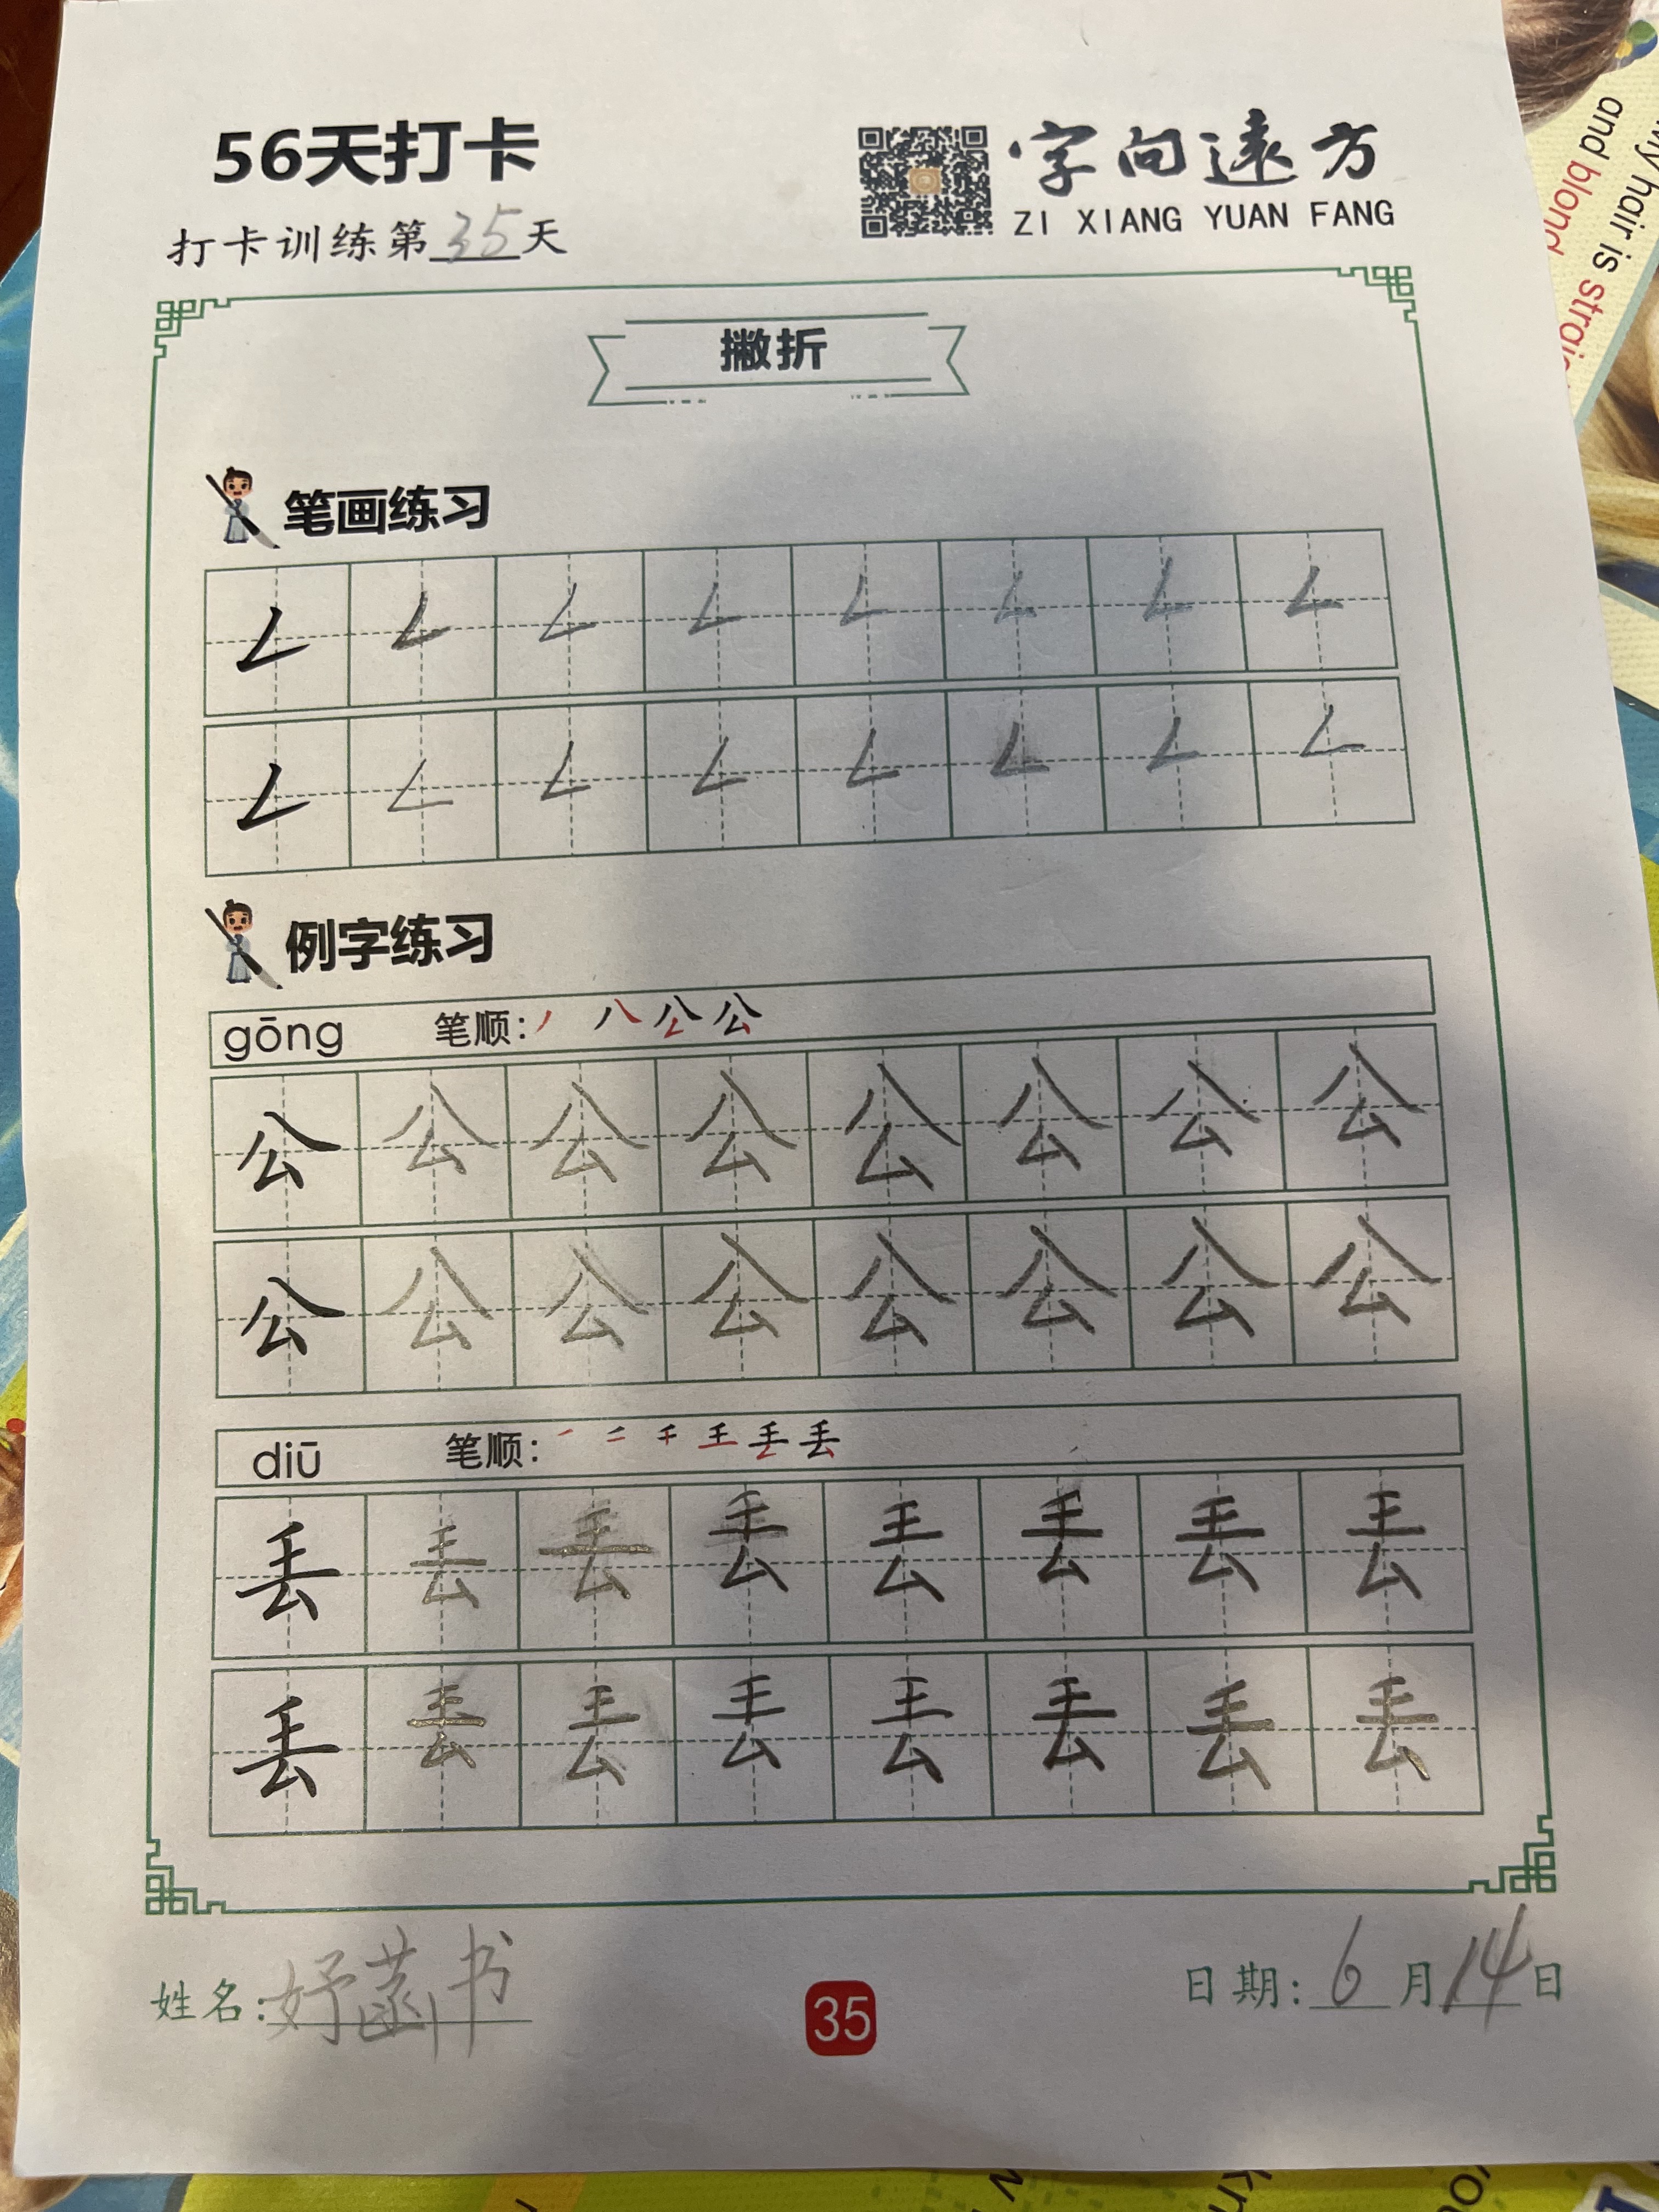 56天打卡
字向遠方
ZI XIANG YUAN FANG
打卡训练第35天
撇折
笔画练习
例字练习
gōng 笔顺:
公 公 公 公 公 公 公 公
公 公 公 公 公 公 公 公
diū 笔顺:
丢 丢 丢 丢 丢 丢 丢 丢
丢 丢 丢 丢 丢 丢 丢 丢
姓名:妤菡书
35
日期:6月14日
My hair is
and blond